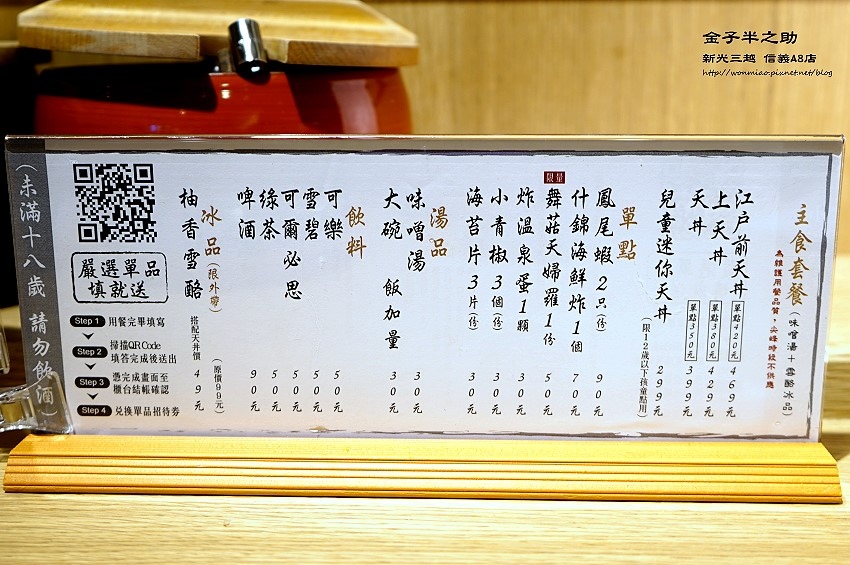 金子半之助
新光三越 信義A8店
http://wonmiao.pixnet.net/blog
主食套餐(味噌湯+雪酪冰品)
為維護用餐品質，尖峰時段不供應
江戶前天丼 單點420元 469元
上天丼 單點380元 429元
天丼 單點350元 399元
兒童迷你天丼 299元
(限12歲以下孩童點用)
單點
鳳尾蝦2只(份) 90元
什錦海鮮炸1個 70元
限量
舞菇天婦羅1份 50元
炸溫泉蛋1顆 30元
小青椒3個(份) 30元
海苔片3片(份) 30元
湯品
味噌湯 30元
大碗 飯加量 30元
飲料
可樂 50元
雪碧 50元
可爾必思 50元
綠茶 50元
啤酒 90元
冰品(限外帶)
(原價99元)
柚香雪酪 搭配天丼價 49元
嚴選單品
填就送
Step 1 用餐完畢填寫
Step 2 掃描QR Code
填答完成後送出
Step 3 憑完成畫面至
櫃台結帳確認
Step 4 兌換單品招待券
(未滿十八歲 請勿飲酒)